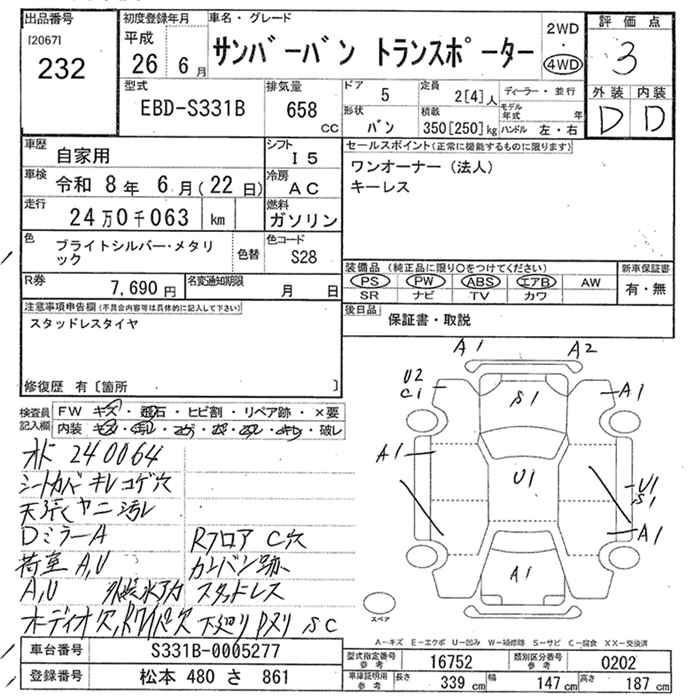 出品番号
[2067]
232
初度登録年月
平成
26 6月
車名・グレード
サンバーバン トランスポーター
2WD
・
4WD
評価点
3
外装 内装
D D
型式
EBD-S331B
排気量
658 CC
ドア 5
形状 バン
定員 2[4]人
積載 350[250]kg
ディーラー・並行
モデル年式 年
ハンドル 左・右
車歴 自家用
シフト I5
車検 令和 8年 6月(22日)
冷房 AC
走行 24万0千063 km
燃料 ガソリン
色 ブライトシルバー・メタリック
色替
色コード S28
R券 7,690円
名変通知期限 月 日
セールスポイント(正常に機能するものに限ります)
ワンオーナー(法人)
キーレス
装備品(純正品に限り○をつけてください)
PS PW ABS エアB AW
SR ナビ TV カワ
新車保証書
有・無
後日品 保証書・取説
注意事項申告欄(不具合内容等は具体的に記入して下さい)
スタッドレスタイヤ
修復歴 有[箇所 ]
検査員記入欄
FW キズ・飛石・ヒビ割・リペア跡・×要
内装 破レ
オド 240064
シートカバーキレコゲ穴
天張ヤニ汚レ
DミラーA
荷室 A,U
A,U
RフロアC穴
カンバン跡
スタッドレス
下廻り
SC
A1
A2
U2
C1
S1
A1
A1
U1
U1
S1
A1
A1
スペア
A-キズ E-エクボ U-凹み W-補修跡 S-サビ C-腐食 XX-交換済
車台番号 S331B-0005277
登録番号 松本 480 さ 861
型式指定番号 参考 16752
類別区分番号 参考 0202
車庫証明用 参考 長さ 339cm 幅 147cm 高さ 187cm